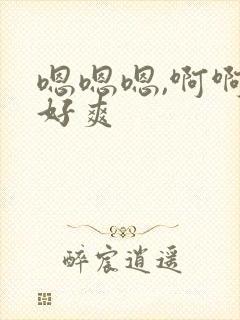 嗯嗯嗯,啊啊
好爽
醉宸逍遥